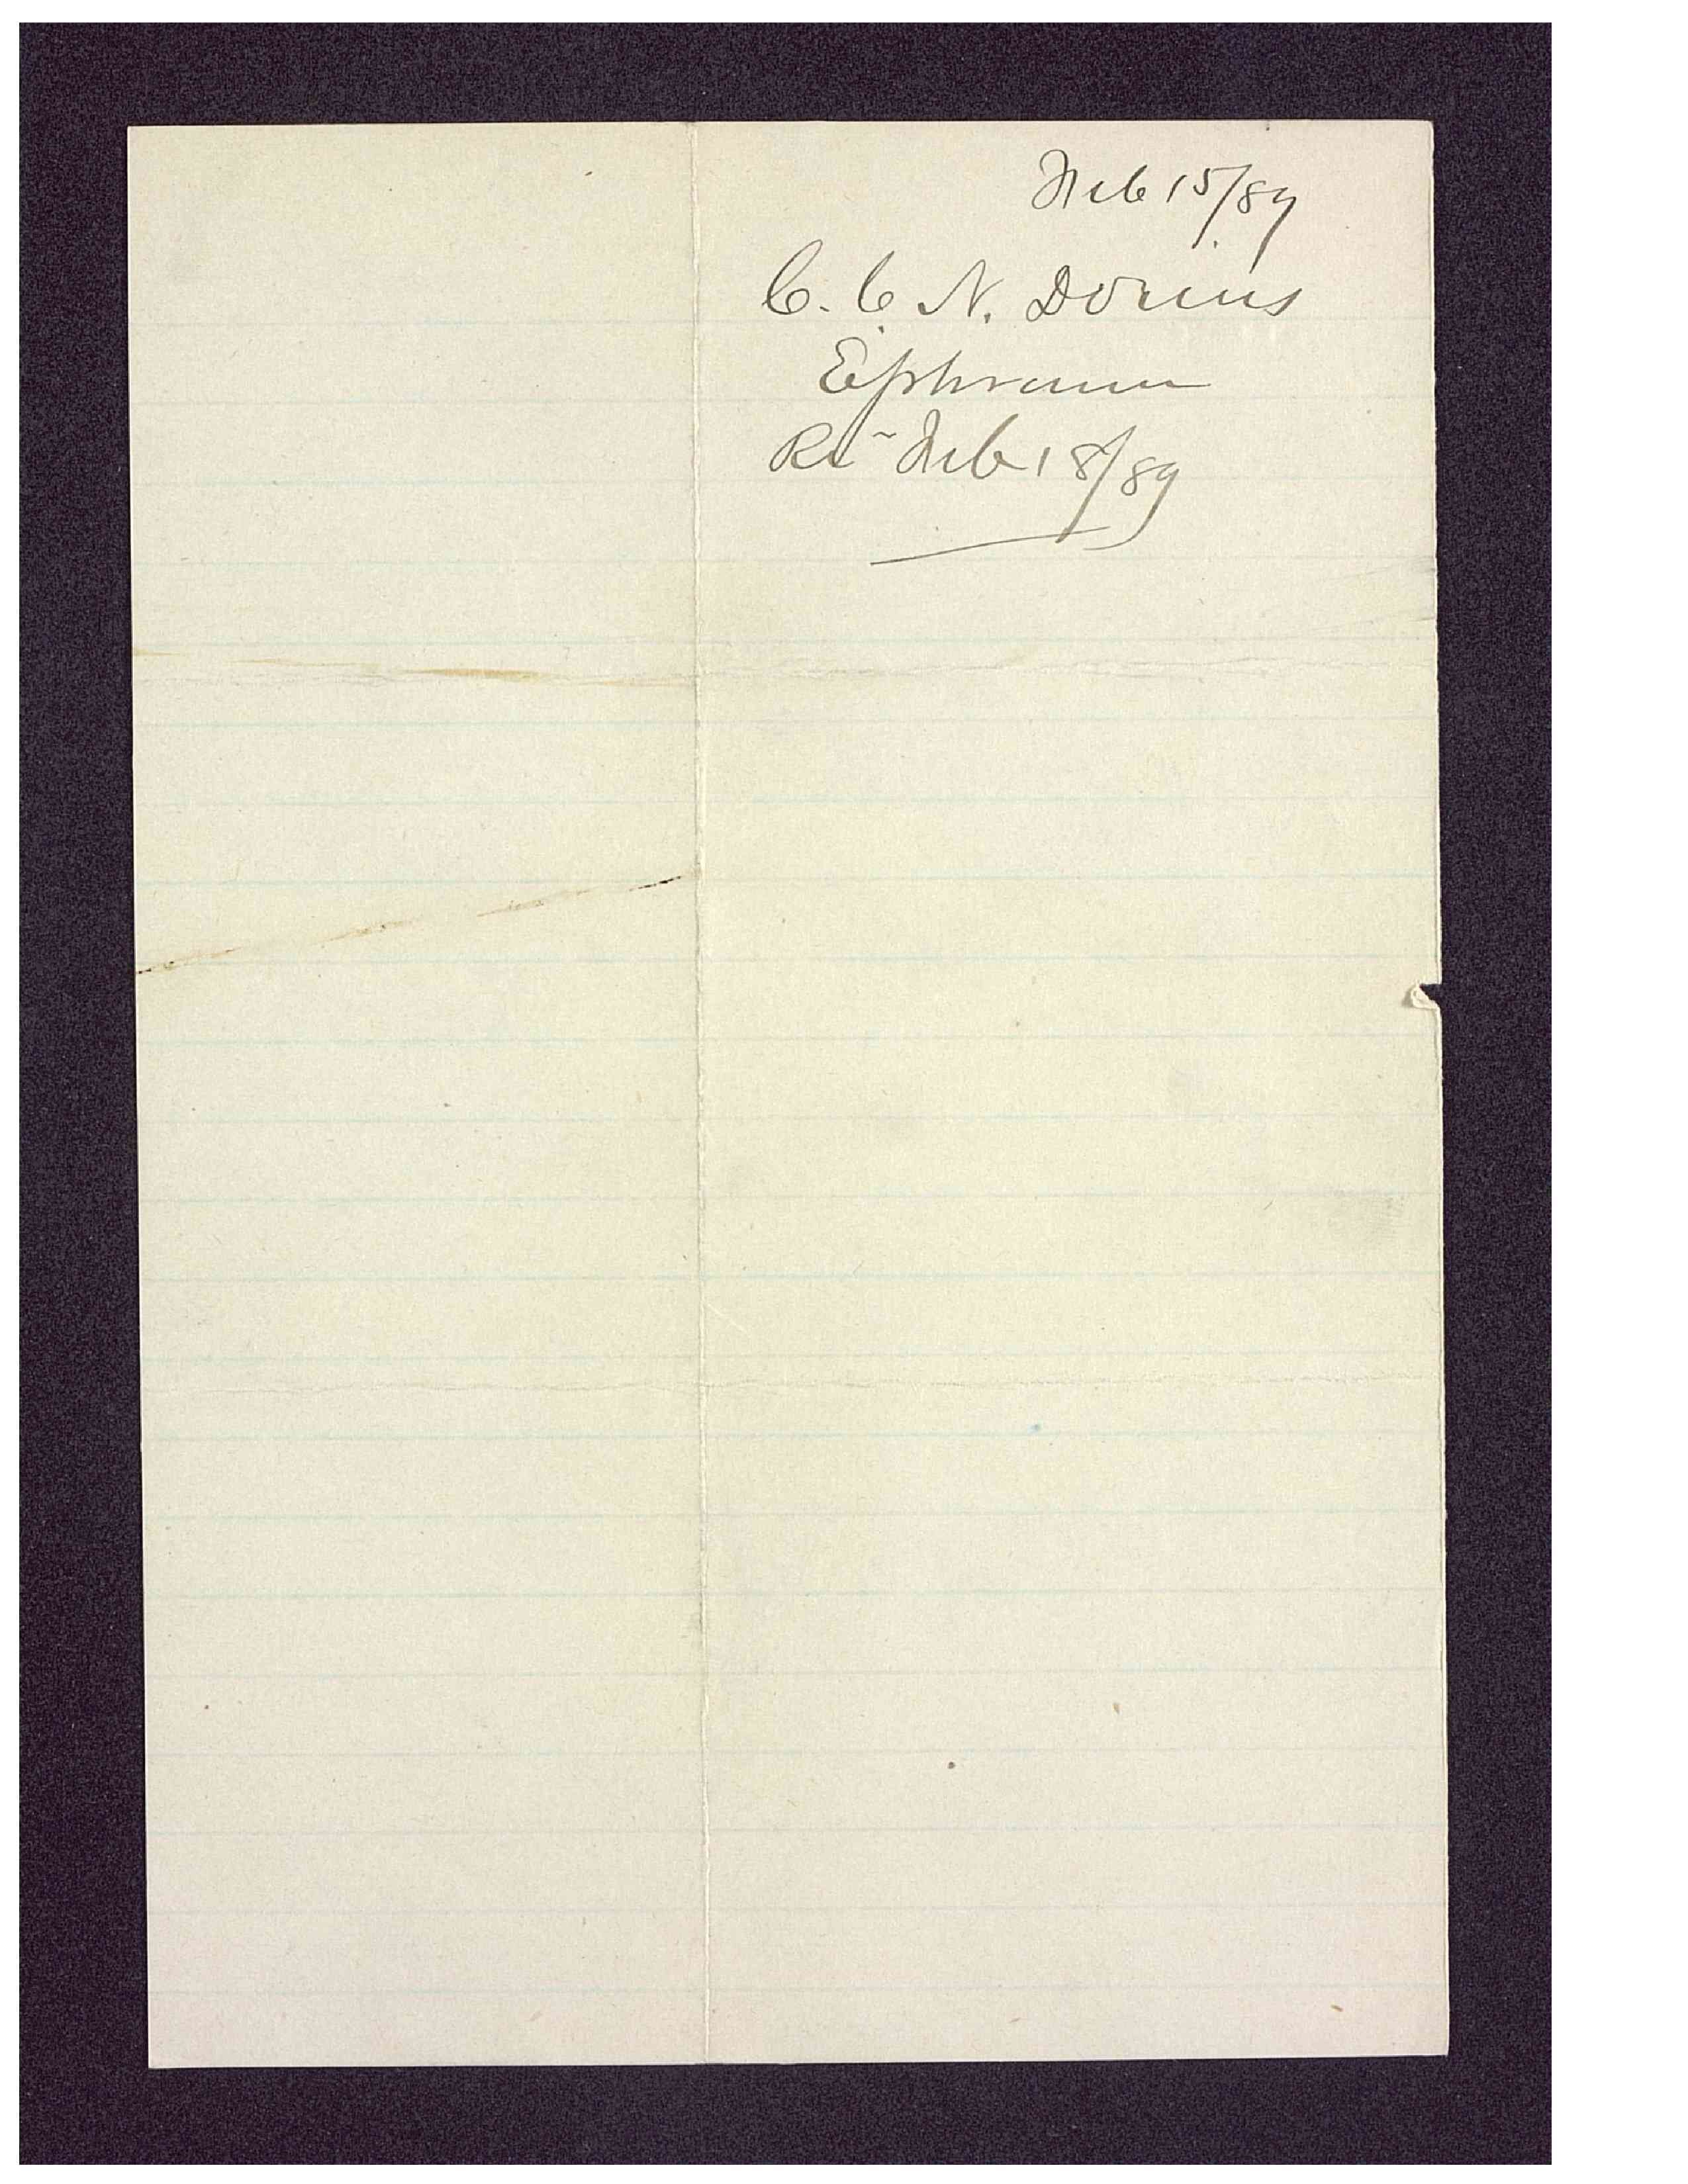 Feb 15/89
C. C. N. Dorius
Ephraim
Rc~ Feb 18/89